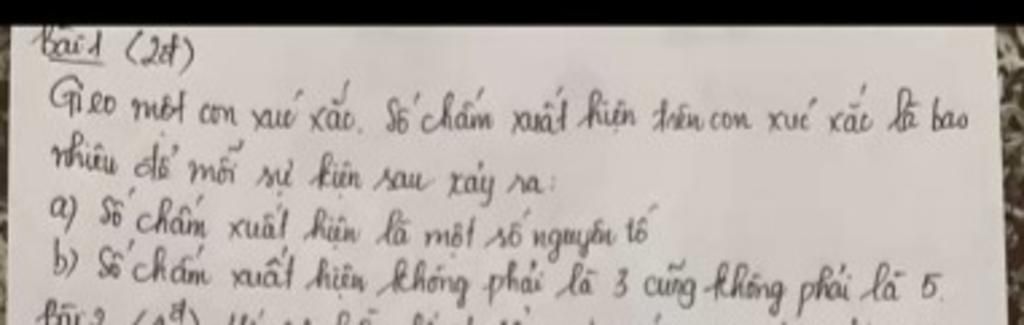 Bài 1 (2đ)
Gieo một con xúc xắc. Số chấm xuất hiện trên con xúc xắc là bao
nhiêu để mỗi sự kiện sau xảy ra:
a) Số chấm xuất hiện là một số nguyên tố
b) Số chấm xuất hiện không phải là 3 cũng không phải là 5.